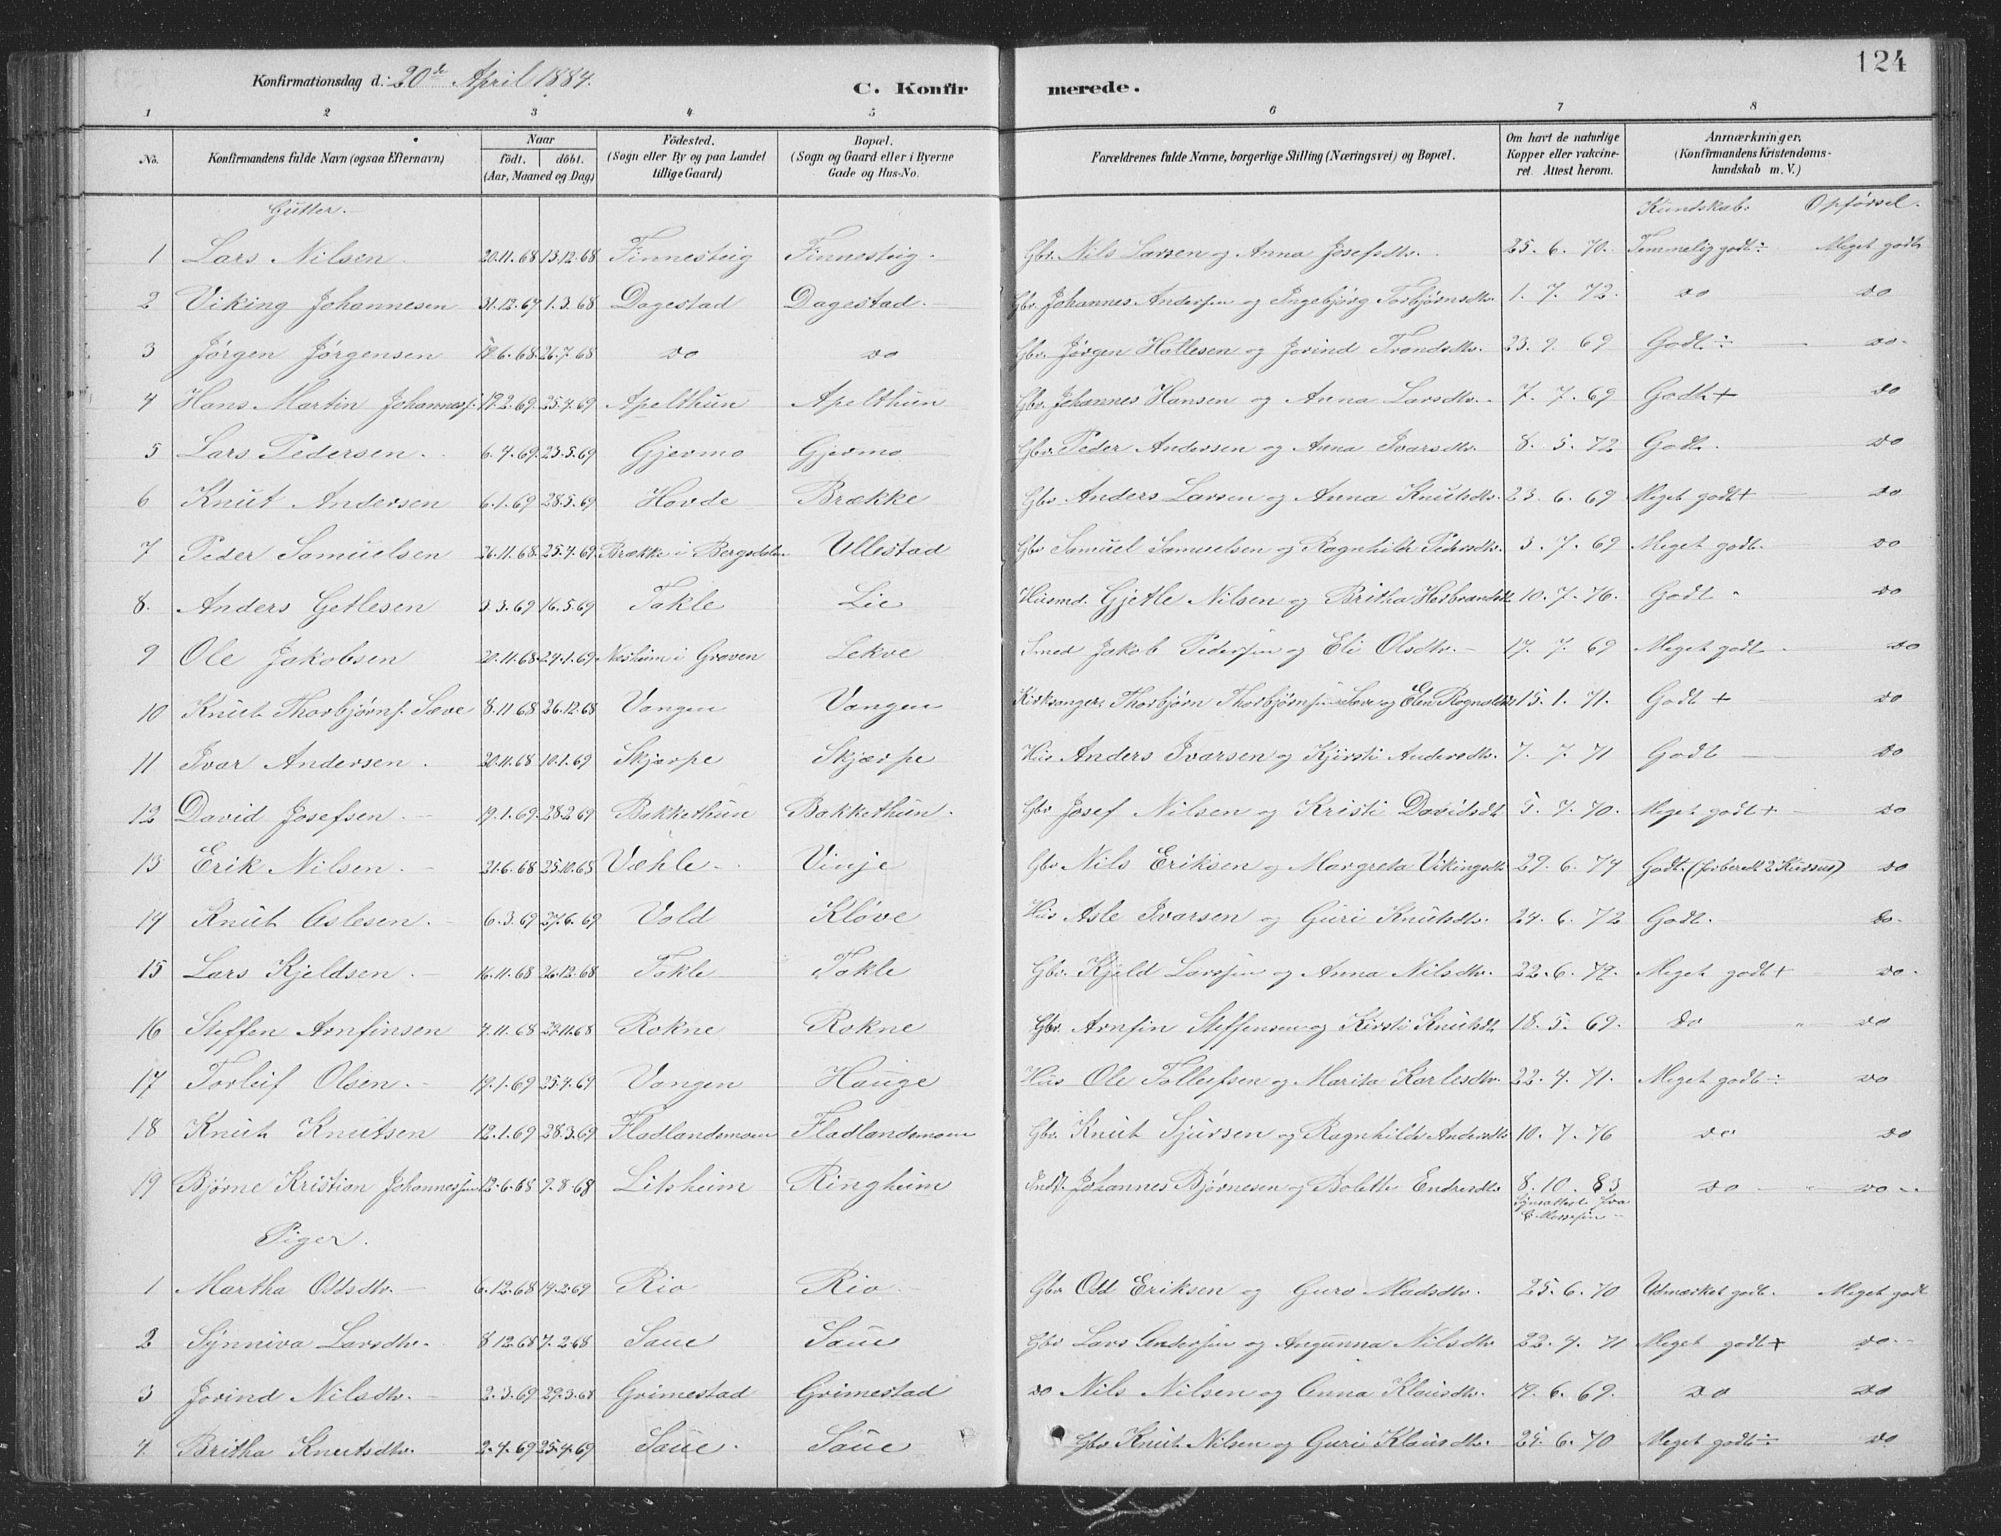 124
Konfirmationsdag d: 20de April 1884.
C. Konfirmerede.
1 2 3 4 5 6 7 8
No. Konfirmandens fulde Navn (ogsaa Efternavn) Naar født. døbt. (Aar, Maaned og Dag) Födested. (Sogn eller By og paa Landet tillige Gaard) Bopæl. (Sogn og Gaard eller i Byerne Gade og Hus-No. Forældrenes fulde Navne, borgerlige Stilling (Næringsvei) og Bopæl. Om havt de naturlige Kopper eller vakcineret. Attest herom. Anmærkninger. (Konfirmandens Kristendomskundskab m. V.)
Gutter. Kundskab: Opførsel.
1 Lars Nilsen 20.11.68 13.12.68 Finnesteig Finnesteig Gbr. Nils Larsen og Anna Josefsdtr. 25. 6. 70. Temmelig godt÷ Meget godt
2 Viking Johannesen 31.12.67 1.3.68 Dagestad Dagestad Gbr. Johannes Andersen og Ingebjørg Torbjørnsdtr. 1. 7. 72. do do
3 Jørgen Jørgensen 19.6.68 26.7.68 do do Gbr. Jørgen Hollesen og Jorind Trondsdtr. 23. 9. 69 Godt÷ do
4 Hans Martin Johannesf. 17.2.69 25.4.69 Apelthun Apelthun Gbr. Johannes Hansen og Anna Larsdtr. 7. 7. 69 Godt+ do
5 Lars Pedersen 6.4.69 23.5.69 Gjermo Gjermo Gbr. Peder Andersen og Anna Ivarsdtr. 8. 5. 72 Godt. do
6 Knut Andersen 6.1.69 28.5.69 Hovde Brække Gbr. Anders Larsen og Anna Knutsdtr. 23. 6. 69 Meget godt+ do
7 Peder Samuelsen 26.11.68 25.4.69 Brække i Bergsdalen Ullestad Gbr Samuel Samuelsen og Ragnhilde Pedersdtr. 3. 7. 69 Meget godt. do
8. Anders Getlesen 3.3.69 16.5.69 Takle Lie Husmd. Gjetle Nilsen og Britha Herbrandsdtr 10. 7. 76. Godt do
9 Ole Jakobsen 20.11.68 24.1.69 Nesheim i Graven Lekve Smed Jakob Pedersen og Eli Olsdtr. 17. 7. 69 Meget godt do
10 Knut Thorbjørnf. Sæve 8.11.68 26.12.68 Vangen Vangen Kirksanger Thorbjørn Thorbjørnsen Sæve og Elen Ragnaldsdtr 15. 1. 71. Godt + do
11 Ivar Andersen 20.11.68 10.1.69 Skjærpe Skjærpe Hus Anders Ivarsen og Kjirsti Andersdtr. 7. 7. 71 Godt do
12 David Josefsen 19.1.69 28.2.69 Bakkethun Bakkethun. Gbr Josef Nilsen og Kristi Davidsdtr 5. 7. 70. Meget godt+ do
13 Erik Nilsen 21.6.68 25.10.68 Væhle Vinje Gbr Nils Eriksen og Margreta Vikingsdtr 29. 6. 74 Godt. (forberedt 2 Kursus) do
14 Knut Aslesen. 6.3.69 27.6.69 Vold Kløve Hus Asle Ivarsen og Guri Knutsdtr. 24. 6. 72 Godt. do
15 Lars Kjeldsen. 16.11.68 26.12.68 Takle Takle Gbr. Kjeld Larssen og Anna Nilsdtr. 22. 6. 72. Meget godt+ do
16 Steffen Arnfinsen 4.11.68 29.11.68 Rokne Rokne Gbr. Arnfin Steffensen og Kirsti Knutsdt 18. 5. 69. do do
17 Torleif Olsen. 19.1.69 25.4.69 Vangen Hauge Hus Ole Tolleifsen og Marita Karlesdtr. 22. 4. 71. Meget godt÷ do
18 Knut Knutsen 12.1.69 28.3.69 Fladlandsmoen Fladlandsmoen Gbr. Knut Sjursen og Ragnhilde Andersdtr 10. 7. 76 do do
19 Bjørne Kristian Johannessen 12.6.68 9.8.68 Litsheim Ringheim Johannes Bjørnesen og Bolette Endresdtr 8. 10. 83 do do
Piger.
1 Martha Oddsdtr. 6.12.68 14.2.69 Rio Rio Gbr Odd Eriksen og Guro Madsdtr. 25. 6. 70 Udmærket godt. Meget godt
2 Synniva Larsdtr. 8.12.68 7.2.68 Saue Saue Gbr Lars Andersen og Angunna Nilsdtr 22. 4. 71 Meget godt+ do
3 Jorind Nilsdtr. 2.3.69 29.3.68 Grimestad Grimestad do Nils Nilsen og Anna Klausdtr. 19. 6. 69. do do
4. Britha Knutsdtr. 2.4.69 25.4.69 Saue. Saue Gbr Knut Nilsen og Guri Klausdtr. 25. 6. 70 Meget godt÷ do